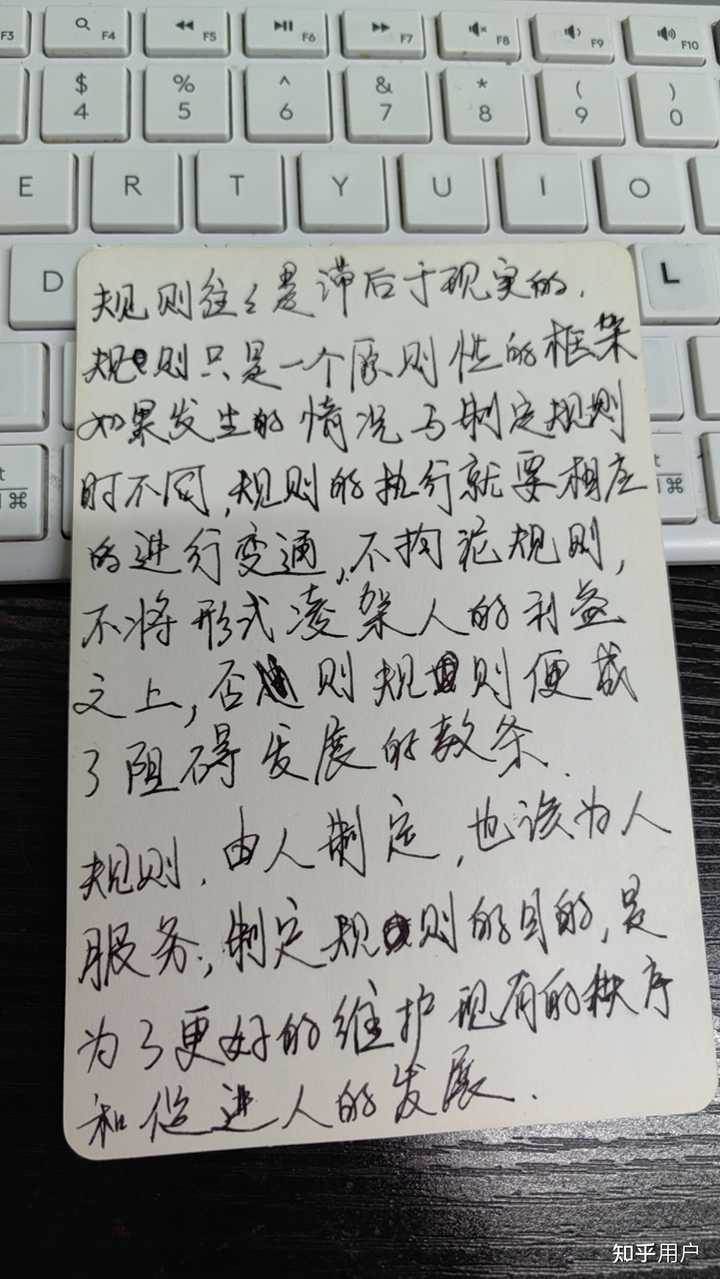 F3
F4
F5
F6
F7
F8
F9
F10
$ 4
% 5
^ 6
& 7
* 8
( 9
) 0
E R T Y U I O
D L
规则往々是滞后于现实的.
规则只是一个原则性的框架
如果发生的情况与制定规则
时不同,规则的执行就要相应
的进行变通,不拘泥规则,
不将形式凌架人的利益
之上,否则规则便成
了阻碍发展的教条.
规则.由人制定,也该为人
服务,制定规则的目的,是
为了更好的维护现有的秩序
和促进人的发展.
t
⌘
⌘
知乎用户